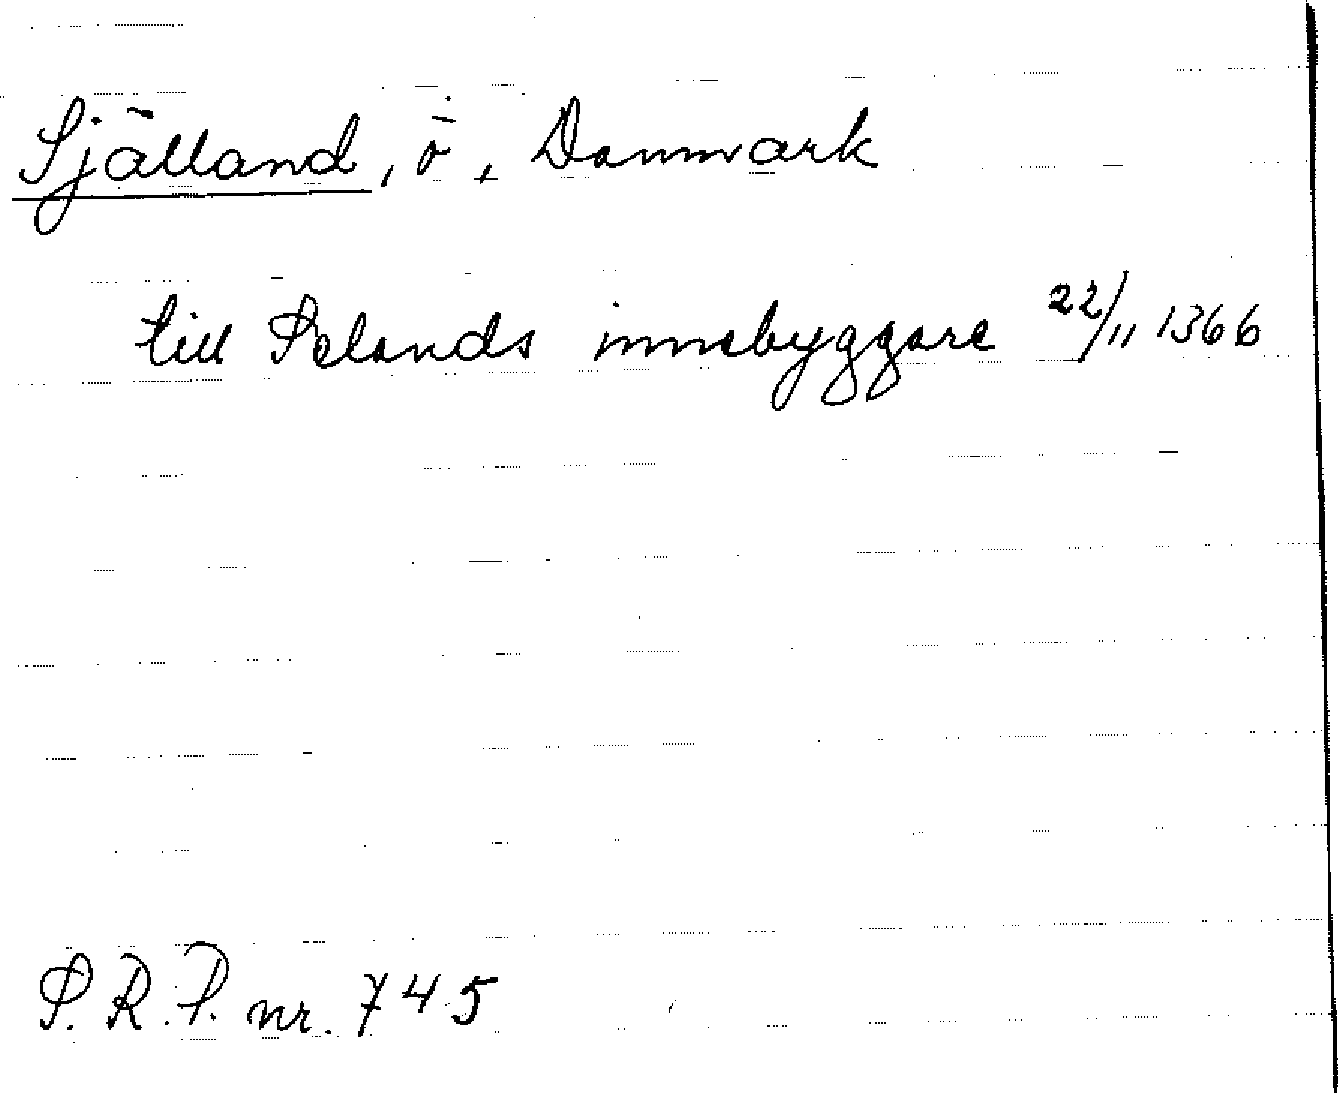 Själland, ö, Danmark
till Selands innebyggare 22/11 1366
S.R.P. nr. 745